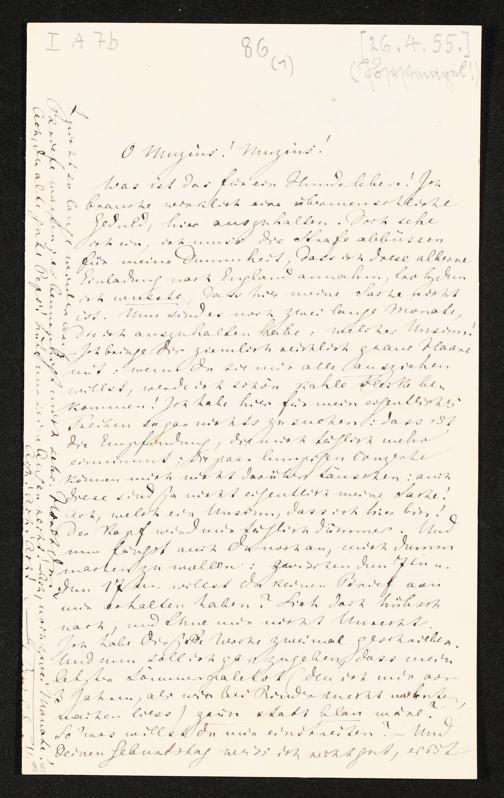 I A 7b
86
(1)
[26.4.55.]
O Muzius! Muzius!
Was ist das für ein Hundeleben! Ich
brauche wirklich eine übermenschliche
Geduld, hier auszuhalten. Doch sehe
ich ein, ich muss die Strafe abbüssen
für meine Dummheit, dass ich diese alberne
Einladung nach England annahm, trotzdem
ich wusste, dass hier meine Sache nicht
ist. Nun sind es noch zwei lange Monate,
die ich auszuhalten habe: welcher Unsinn!
Ich bringe dir ziemlich reichlich graue Haare
mit: wenn du sie mir alle ausziehen
willst, werde ich schön kahle Flecke be
kommen! Ich habe hier für mein eigentliches
so gar nichts zu suchen: dass ist
die Empfindung, die mich täglich mehr
einnimmt; die paar lumpigen Conzerte
können mich nicht darüber täuschen: auch
diese sind ja nicht eigentlich meine Sache!
Ach, welch ein Unsinn, dass ich hier bin!
Der Kopf wird mir täglich dümmer. Und
nun fängst auch Du noch an, mich dumm
machen zu wollen: zwischen den 7ten u.
den 17ten willst du keinen Brief von
mir erhalten haben? Sieh doch hübsch
nach, und thue mir nicht Unrecht.
Ich habe Dir jede Woche zweimal geschrieben.
Und nun soll ich gar zugeben, dass mein
letzter Sommerpaletot (den ich mir vor
3 Jahren, als wir bei Rinderknecht wohnten,
machen liess) grün statt blau wäre?
So was willst du mir einstreiten? – Und
Deinen Geburtstag weiss ich recht gut, er ist